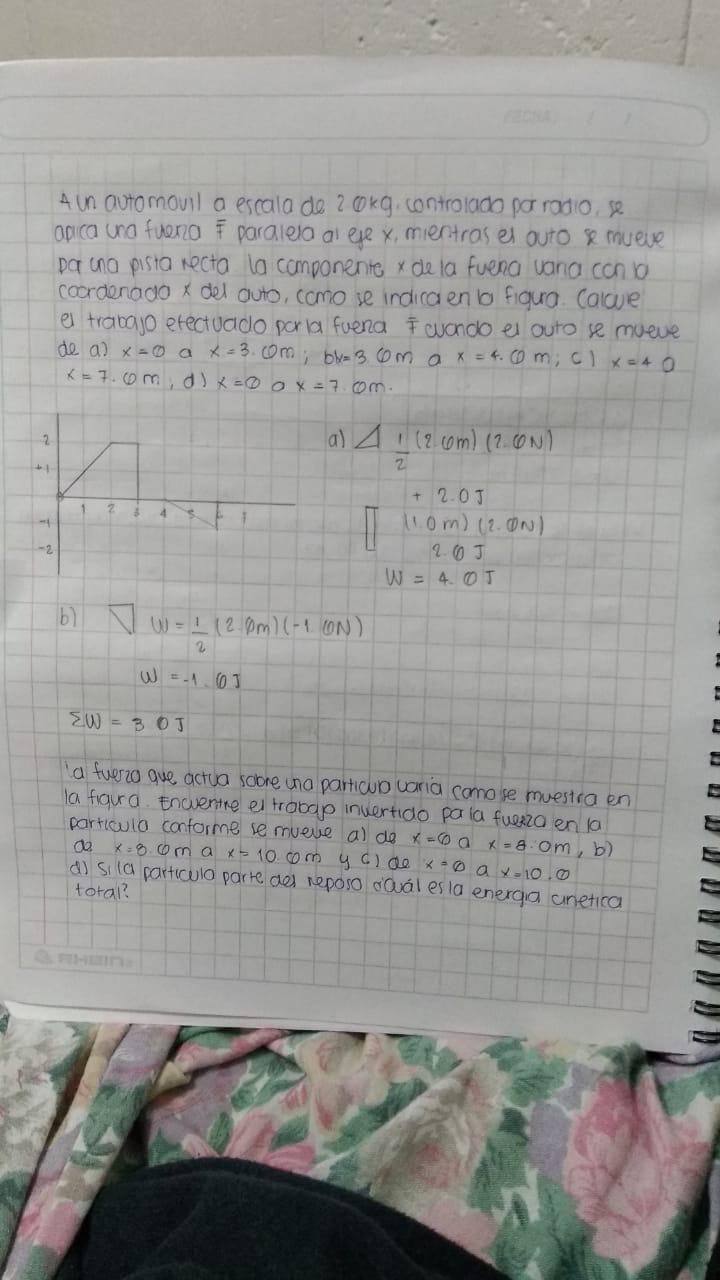 FECHA: / /
A un automovil a escala de 2.0kg. controlado por radio, se
aplica una fuerza F paralela al eje x, mientras el auto se mueve
por una pista recta la componente x de la fuerza varia con la
coordenada x del auto, como se indica en la figura. Calcule
el trabajo efectuado por la fuerza F cuando el auto se mueve
de a) x=0 a x=3.0m; b) x=3.0m a x=4.0m; c) x=4.0
x=7.0m, d) x=0 a x=7.0m.
2
+1
-1
-2
1 2 3 4 5 6 7
a) 1/2 (2.0m) (2.0N)
+ 2.0J
(1.0m) (2.0N)
2.0J
W = 4.0J
b) W = 1/2 (2.0m)(-1.0N)
W = -1.0J
ΣW = 3.0J
La fuerza que actua sobre una particula varia como se muestra en
la figura. Encuentre el trabajo invertido pa la fuerza en la
particula conforme se mueve a) de x=0 a x=8.0m, b)
de x=8.0m a x=10.0m y c) de x=0 a x=10.0
d) si la particula parte del reposo cuál es la energia cinetica
total?